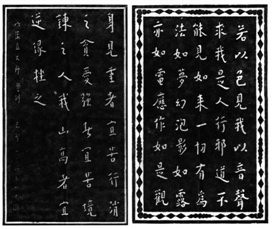 若以色見我以音聲
求我是人行邪道不
能見如来一切有為
法如夢幻泡影如露
亦如電應作如是觀
身見重者宜苦行消
之貪愛强者宜苦境
之人我山高者宜
逆缘挫之